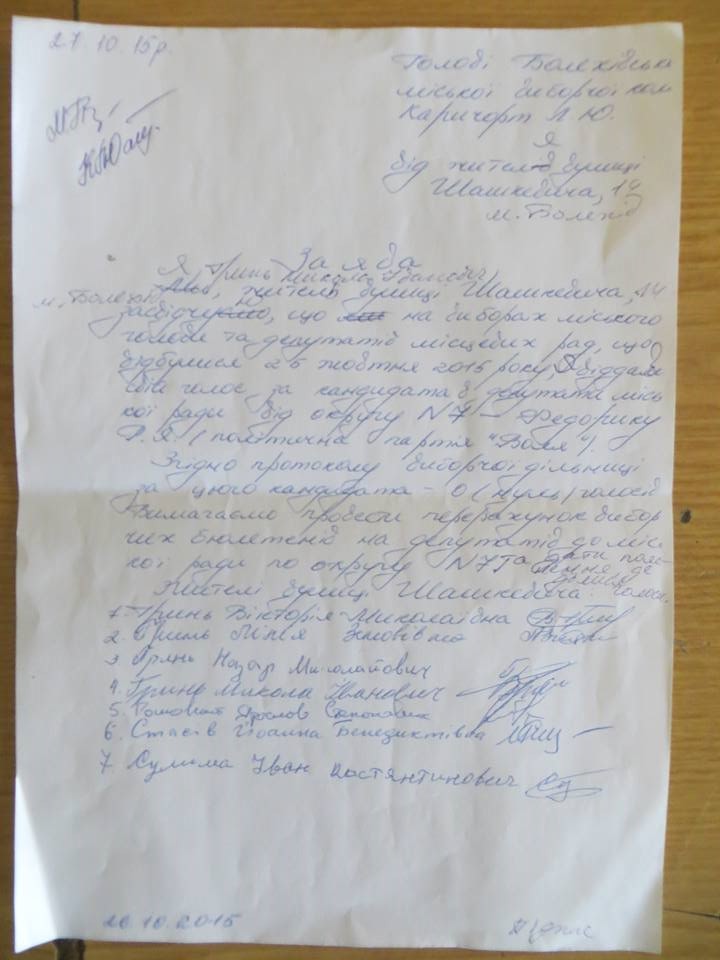 27.10.15р.
Голові Болехівська
міської виборчої ком
Каричорт Л. Ю.
Я
від жителів вулиці
Шашкевича, 14
м. Болехів
Заява
Я, Гринь Микола Іванович,
м. Болехів, жителі вулиці Шашкевича, 14
засвідчу, що на виборах міського
голови та депутатів місцевих рад, що
відбулися 25 жовтня 2015 року, Я віддали
свій голос за кандидата в депутата місь
кої ради від округу N7 – Федорику
Р. Я. (політична партія "Воля").
Згідно протоколу виборчої дільниці
за цього кандидата – 0 (нуль) голосів
Вимагаємо провести перерахунок вибор
чих бюлетенів на депутатів до місь
кої ради по округу N7 та дати пояс
нення де
ділися голоси.
Жителі вулиці Шашкевича:
1. Гринь Вікторія Миколаївна
2. Гринь Лілія Зіновіївна
3. Гринь Назар Миколайович
4. Гринь Микола Іванович
5. Ярослав
6. Стасів Йоанна Бенедиктівна
7. Сулима Іван Костянтинович
26.10.2015